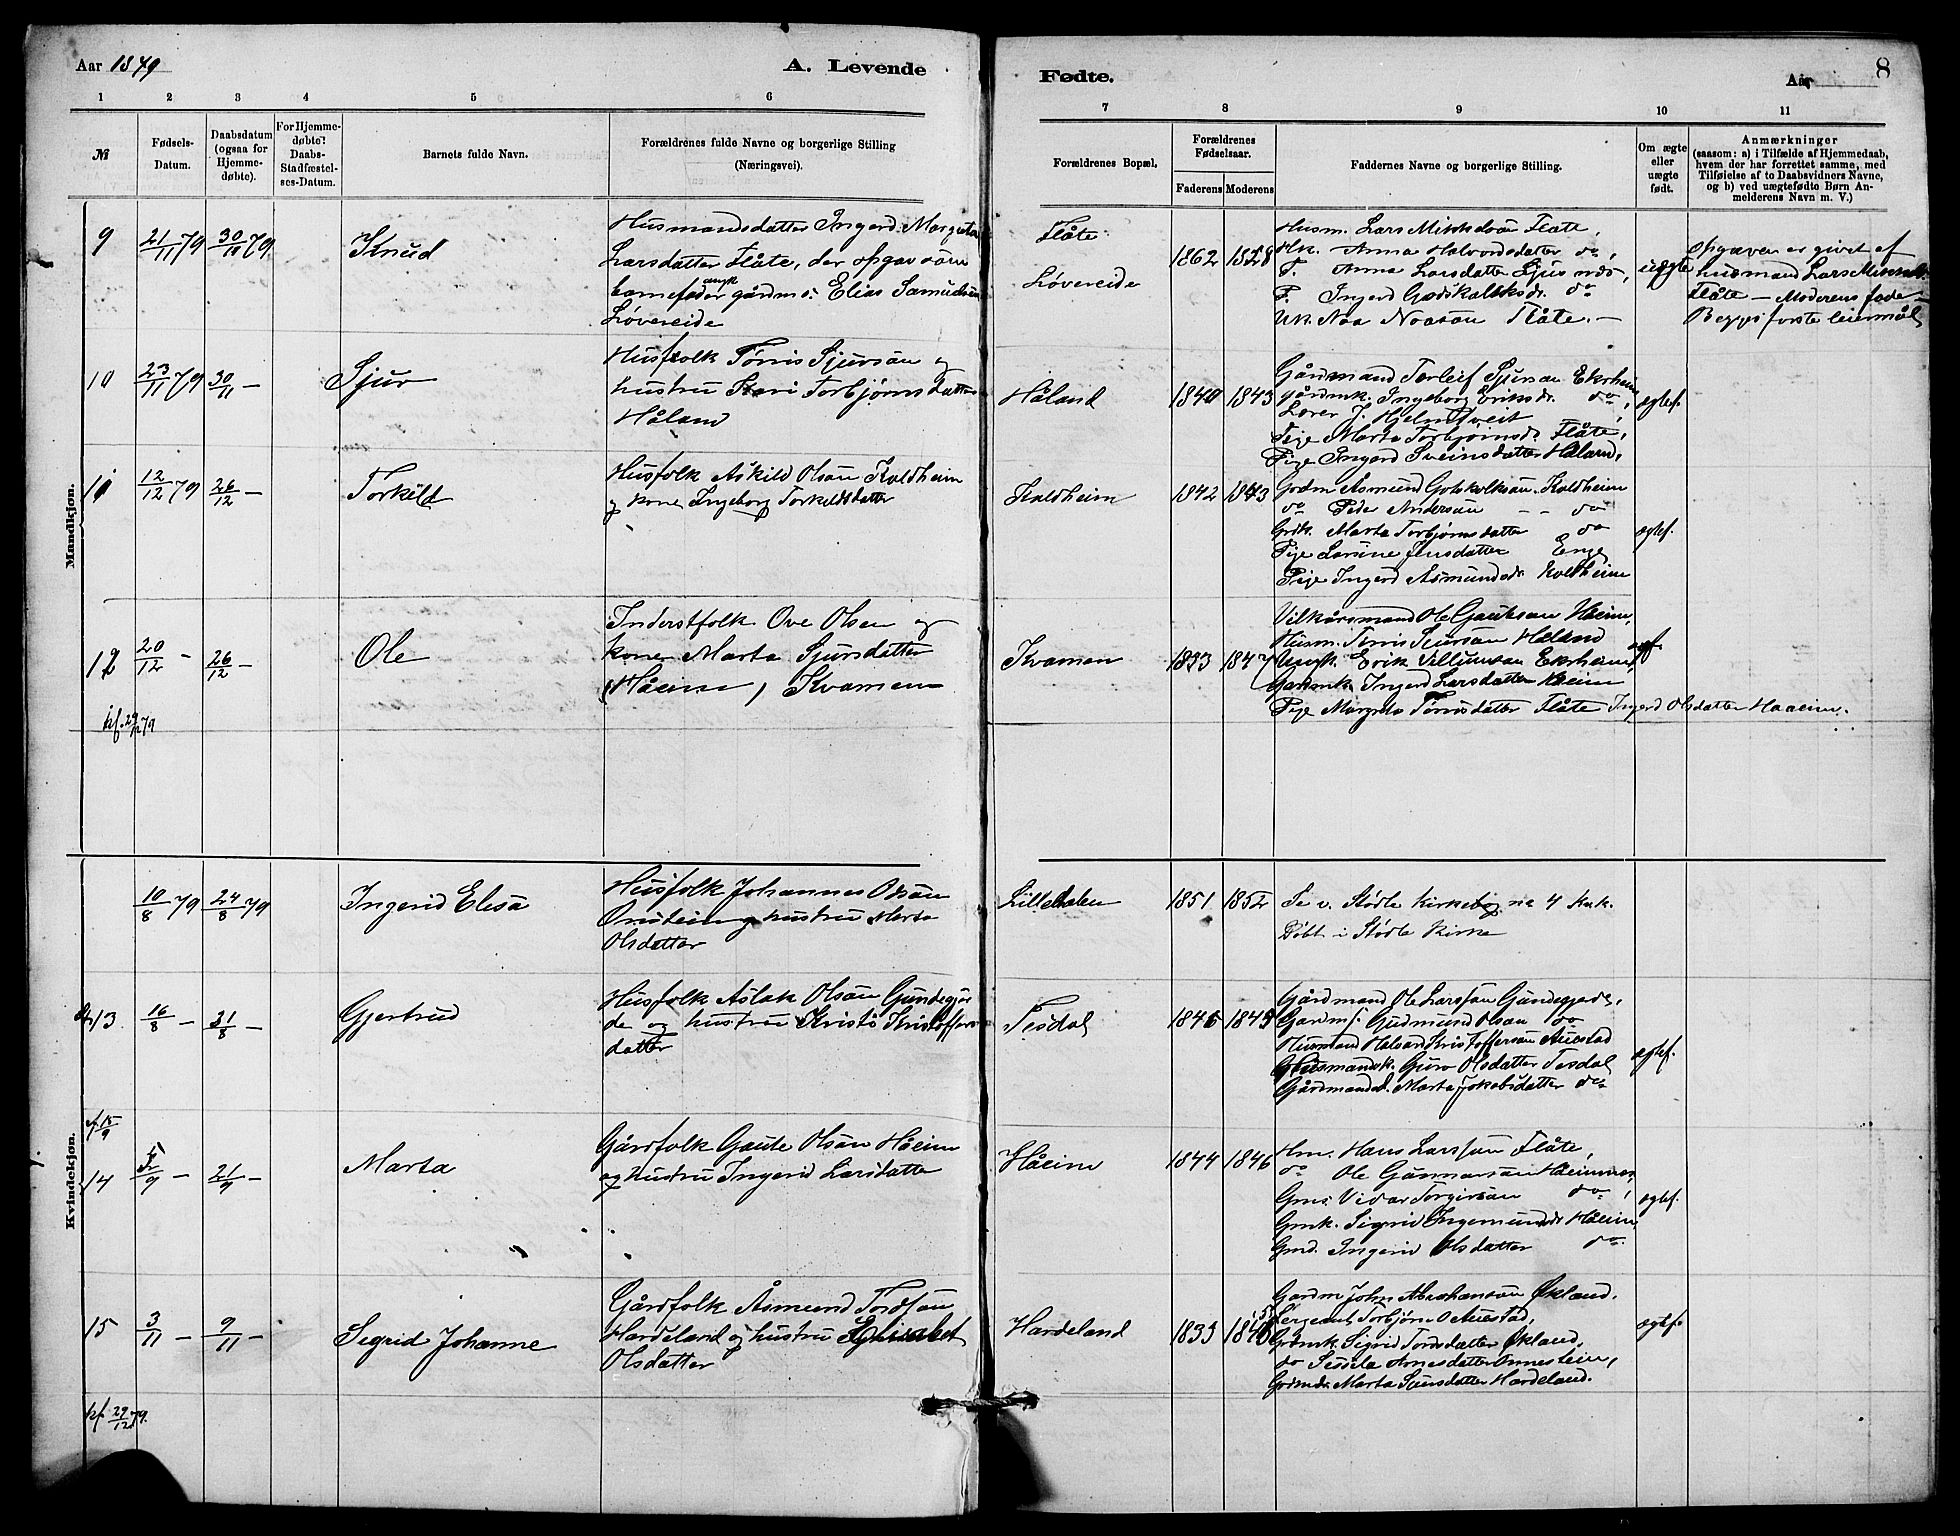 Aar 1879
A. Levende
Fødte.
Aar
8
1 2 3 4 5 6 7 8 9 10 11
№
Fødsels-
Datum.
Daabsdatum
(ogsaa for
Hjemme-
døbte).
For Hjemme-
døbte:
Daabs-
Stadfæstel-
ses-Datum.
Barnets fulde Navn.
Forældrenes fulde Navne og borgerlige Stilling
(Næringsvei).
Forældrenes Bopæl.
Forældrenes
Fødselsaar.
Faderens Moderens
Faddernes Navne og borgerlige Stilling.
Om ægte
eller
uægte
født.
Anmærkninger
(saasom: a) i Tilfælde af Hjemmedaab,
hvem der har forrettet samme, med
Tilføielse af to Daabsvidners Navne,
og b) ved uægtefødte Børn An-
melderens Navn m. V.)
Mandkjøn.
9 21/11 79 30/11 79 Knud
Husmandsdatter Ingerd Margreta
Larsdatter Flåte, der opgav som
barnefader ungk gårdms. Elias Samuelsen
Løvereide
Flåte
Løvereide
1862 1828
Husm. Lars Mikkelsön Flåte,
Hk. Anna Halvorsdatter do,
P. Anna Larsdatter
P. Ingerd Godskalksdr. do
Uk. Noa Noasön Flåte. —
uægte
Opgaven er givet af
husmand Lars Mikkels.
Flåte — Moderens fader —
Begges første leiermål
10 23/11 79 30/11 — Sjur
Husfolk Tørris Sjursön og
hustru Kari Torbjørnsdatter
Håland
Håland
1840 1843
Gårdmand Torleif Sjursön Ekrheim
gårdmk. Ingeborg Eriksdr. do,
Lærer J. Hjelmtveit
Pige Marta Torbjørnsdr. Flåte,
Pige Ingerd Sveinsdatter Håland,
ægtef.
11 12/12 79 26/12 — Torkild
Husfolk Askild Olsön Koldheim
og kone Ingeborg Torkildsdatter
Koldheim
1842 1843
Grdm Asmund Gotskalksön Koldheim
do Peder Andersön — — do
Grdk. Marta Torbjørnsdatter do
Pige Larsine Jensdatter Enge
Pige Ingerd Asmundsdr. Koldheim
ægtef.
12 20/12 — 26/12 — Ole
Inderstfolk Ove Olsen og
kone Marta Sjursdatter
(Håeim) Kvamen
Kvamen
1853 1847
Vilkårsmand Ole Gautesön Håeim,
Husm. Tørris Sjursön Håland
Ungk. Erik Villumsön Ekrheim,
Gardmk. Ingerd Larsdatter Håeim
Pige Margreta Tørrisdatter Flåte Ingerd Olsdatter Haaeim.
ægtef.
kf. 29/12 79
Kvindekjøn.
10/8 79 24/8 79 Ingerid Elisa
Husfolk Johannes Odsön
Onstein og hustru Marta
Olsdatter
Lilledalen
1851 1852
Se v. Stødle kirkebog no 4 Kvk.
Døbt i Stødle Kirke
13 16/8 — 31/8 — Gjertrud
Husfolk Aslak Olsön Gundegjør
de og hustru Kristi Kristoffers
datter
Tesdal
1846 1845
Gårdmand Ole Larssön Gundegjerde,
Gardms. Gudmund Olsön do
Husmand Halvard Kristoffersön Austad
Husmandsk. Guro Olsdatter Tesdal
Gårdmandsd. Marta Jokobsdatter do
ægtef.
kf 15/9
14 5/9 — 21/9 — Marta
Gårdfolk Gaute Olsön Håeim
og hustru Ingerid Larsdatter
Håeim
1844 1846
Hm. Hans Larssön Flåte,
do Ole Gunnarsön Håeimsnes,
Gms. Vidar Torgirsön do,
Gmk. Sigrid Ingemundsdr. Håeim
Gmd. Ingerid Olsdatter do.
ægtef.
15 3/11 — 9/11 — Segrid Johanne
Gårdfolk Åsmund Tordsön
Hardeland og hustru Elisabet
Olsdatter
Hardeland
1833
Gardm John Abrahamsön Økland.
Sergeant Torbjørn O Austad,
Grdmk. Sigrid Tordsdatter Økland,
do Sessela Arnesdatter Onnestein,
Grdmdr. Marta Sjursdatter Hardeland.
ægtef.
kf. 29/12 79.